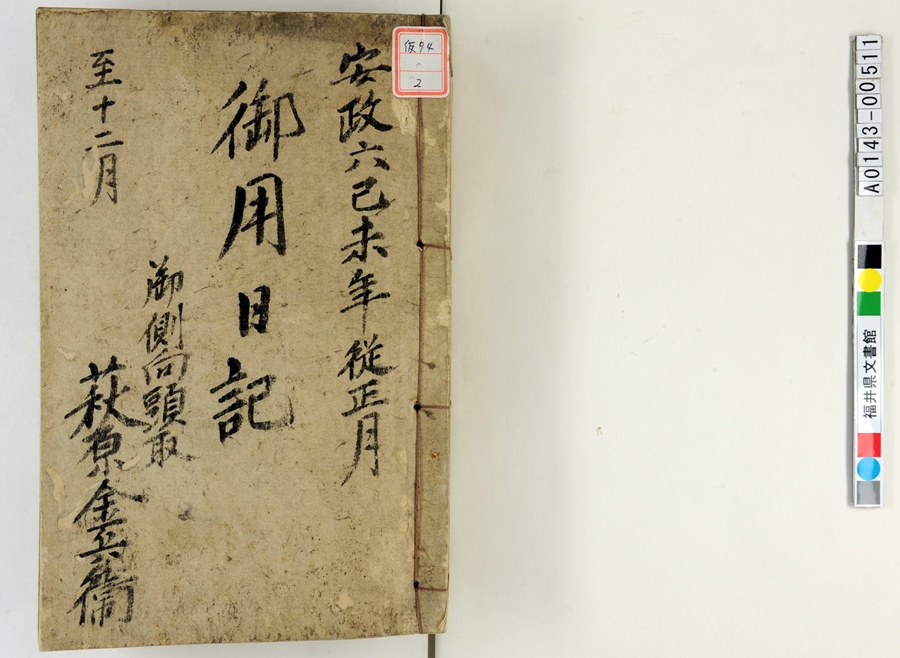 安政六己未年従正月
御用日記
至十二月
御側向頭取
萩原金兵衛
仮94
2
A0143-00511
福井県文書館